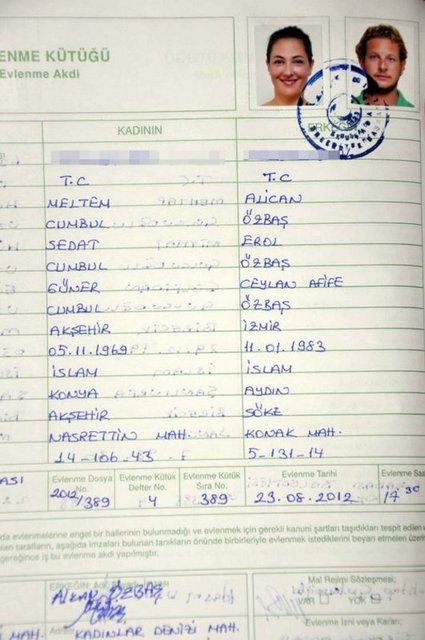 ENME KÜTÜĞÜ
Evlenme Akdi
KADININ
T.C T.C
MELTEM ALİCAN
CUMBUL ÖZBAŞ
SEDAT EROL
CUMBUL ÖZBAŞ
GÜNER CEYLAN AFİFE
CUMBUL ÖZBAŞ
AKŞEHİR İZMİR
05.11.1969 11.01.1983
İSLAM İSLAM
KONYA AYDIN
AKŞEHİR SÖKE
NASRETTİN MAH. KONAK MAH.
14-166-43 5-131-14
ASI Evlenme Dosya No. 2012/389 Evlenme Kütük Defter No. 4 Evlenme Kütük Sıra No. 389 Evlenme Tarihi 23.08.2012 Evlenme Saa 17 30
da evlenmelerine engel bir hallerinin bulunmadığı ve evlenmek için gerekli kanuni şartları taşıdıkları tespit edilen
len tarafların, aşağıda imzaları bulunan tanıkların önünde birbirleriyle evlenmek istediklerini beyan etmeleri üzerin
gereğince iş bu evlenme akdi yapılmıştır.
ERKEĞİN
Alican ÖZBAŞ
Mal Rejimi Sözleşmesi;
VAR YOK
Evlenme İzni veya Kararı;
MAH. KADINLAR DENİZİ MAH.